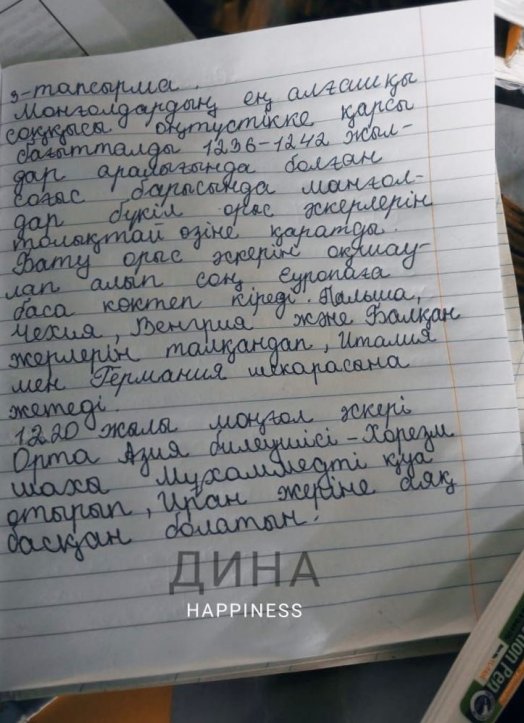 3-тапсырма.
Монғолдардың ең алғашқы
соққысы оңтүстікке қарсы
бағытталды 1236-1242 жыл-
дар аралығында болған
соғыс барысында манғол-
дар бүкіл орыс әскерлерін
толықтай өзіне қаратты.
Бату орыс әскерін оқшау-
лап алып соң Еуропаға
баса көктеп кіреді. Польша,
Чехия, Венгрия және Балқан
жерлерін талқандап, Италия
мен Германия шекарасына
жетеді.
1220 жылы моңғол әскері
Орта Азия билеушісі - Хорезм
шахы Мұхаммедті қуа
отырып, Иран жеріне аяқ
басқан болатын.
ДИНА
HAPPINESS